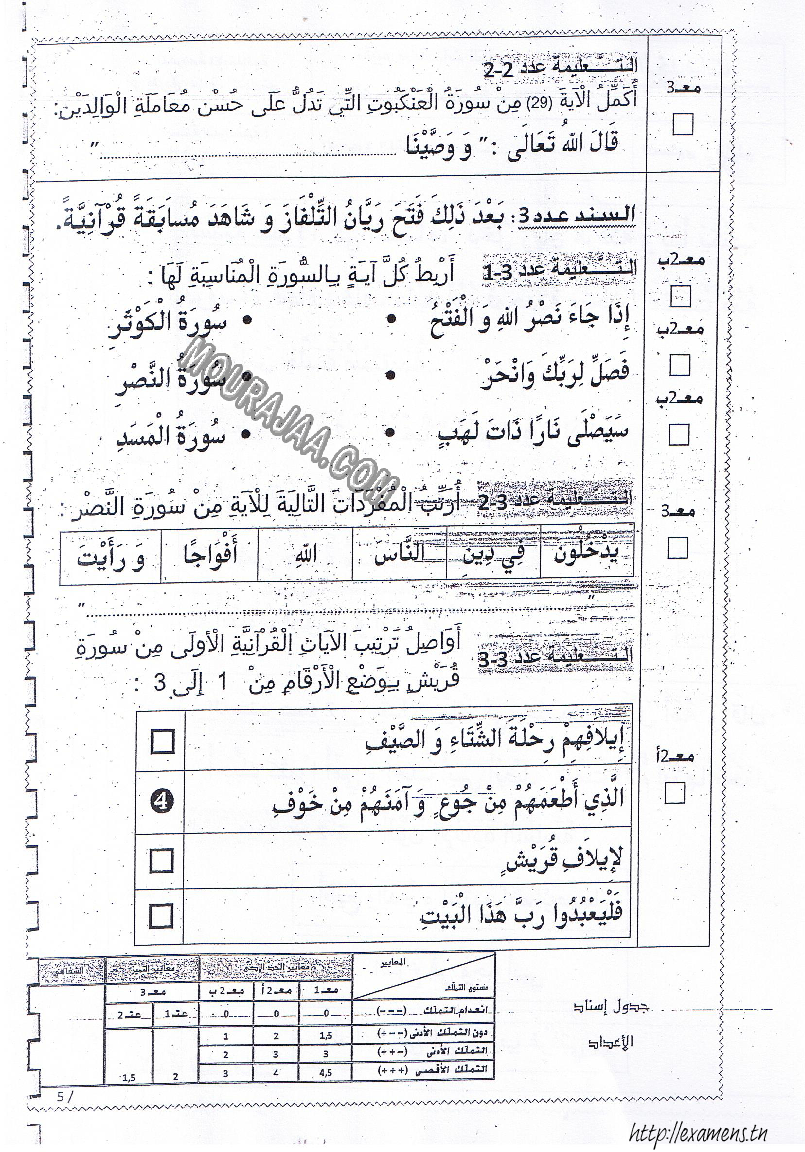 التـــعليمة عدد 2-2
أُكَمِّلُ الْآيَةَ (29) مِنْ سُورَةُ الْعَنْكَبُوتِ التِّي تَدُلُّ عَلَى حُسْنِ مُعَامَلَةِ الْوَالِدَيْنِ:
قَالَ اللهُ تَعَالَى : " وَ وَصَّيْنَا ........................................................"
معـ3
السند عدد3: بَعْدَ ذَلِكَ فَتَحَ رَيَّانُ التِّلْفَازَ وَ شَاهَدَ مُسَابَقَةً قُرْآنِيَّةً.
التـــعليمة عدد 3-1 أَرْبِطُ كُلَّ آيَةٍ بِالسُّورَةِ الْمُنَاسِبَةِ لَهَا :
إِذَا جَاءَ نَصْرُ اللهِ وَ الْفَتْحُ • • سُورَةُ الْكَوْثَرِ
فَصَلِّ لِرَبِّكَ وَانْحَرْ • • سُورَةُ النَّصْرِ
سَيَصْلَى نَارًا ذَاتَ لَهَبٍ • • سُورَةُ الْمَسَدِ
معـ2ب
معـ2ب
معـ2ب
MOURAJAA.COM
التـــعليمة عدد 3-2 أُرَتِّبُ الْمُفْرَدَاتِ التَّالِيَةَ لِلْآيَةِ مِنْ سُورَةِ النَّصْرِ :
يَدْخُلُونَ فِي دِينِ النَّاسَ اللهِ أَفْوَاجًا وَ رَأَيْتَ
"........................................................"
معـ3
التـــعليمة عدد 3-3 أُوَاصِلُ تَرْتِيبَ الآيَاتِ الْقُرْآنِيَّةِ الْأُولَى مِنْ سُورَةِ
قُرَيْشٍ بِوَضْعِ الْأَرْقَامِ مِنْ 1 إِلَى 3 :
إِيلَافِهِمْ رِحْلَةَ الشِّتَاءِ وَ الصَّيْفِ
الَّذِي أَطْعَمَهُمْ مِنْ جُوعٍ وَ آمَنَهُمْ مِنْ خَوْفٍ 4
لِإِيلَافِ قُرَيْشٍ
فَلْيَعْبُدُوا رَبَّ هَذَا الْبَيْتِ
معـ2أ
جدول إسناد
الأعداد
المعايير معايير الحد الأدنى معايير التميز
مستوى التملك معـ1 معـ2أ معـ2ب معـ3
انعدام التملك (- - -) 0 0 0 عـ1 عـ2
دون التملك الأدنى (+ - -) 1,5 2 1
التملك الأدنى (+ + -) 3 3 2
التملك الأقصى (+ + +) 4,5 4 3 2 1,5
5 /
http://examens.tn